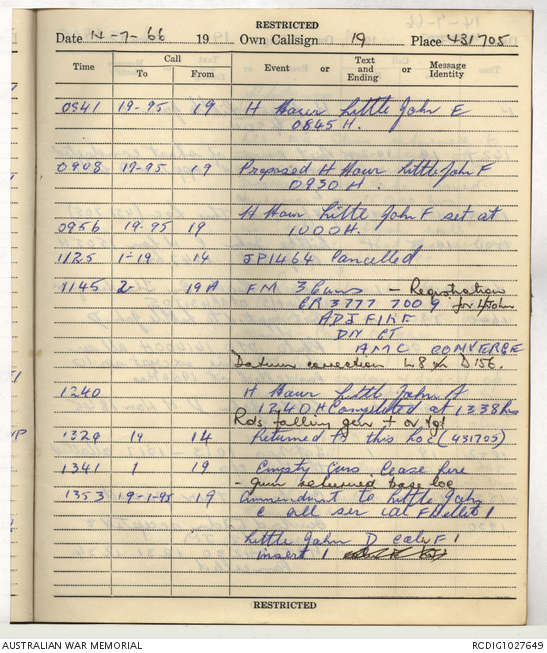 RESTRICTED
Date 14-7-66 19 Own Callsign 19 Place 431705
Time Call Event or Text and Ending or Message Identity
To From
0841 19-95 19 H Hour Little John E
0845 H.
0908 19-95 19 Proposed H Hour Little John F
0930 H.
H Hour Little John F set at
0956 19-95 19 1000H.
1125 1-19 14 JP1464 Cancelled
1145 2 19A FM 3 Guns - Registration
GR 3777 7009 for L/John
ADJ FIRE
DN PT
AMC CONVERGE
Datum correction L8 D15E.
1240 H Hour Little John A
1240 H Completed at 1338 Hrs
Rds falling gun + or tgt
1329 19 14 Returned to this Loc (431705)
1341 1 19 Empty Guns Cease fire
- Gun returned base loc
1353 19-1-95 19 Ammendmt to Little John
C all ser cal F Delete 1
Little John D cal F 1
insert 1
RESTRICTED
AUSTRALIAN WAR MEMORIAL RCDIG1027649